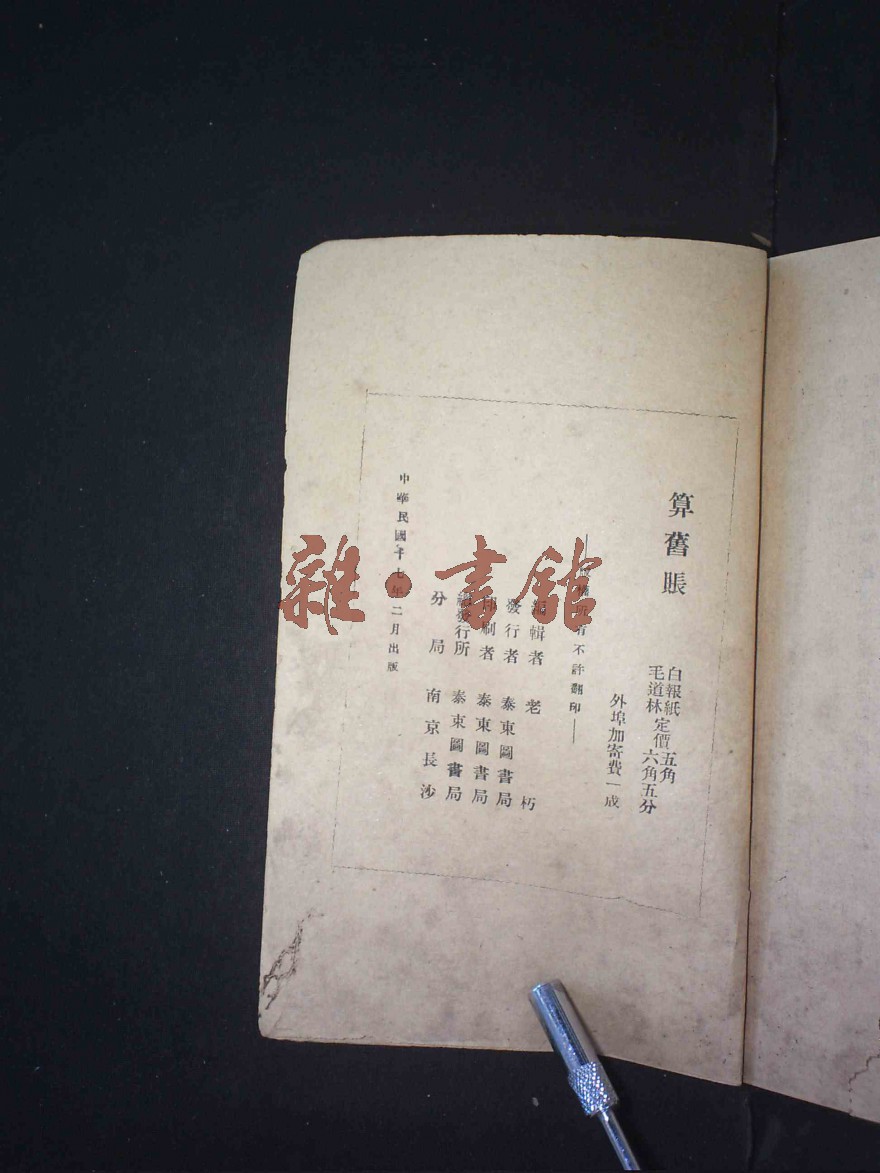 算舊賬
白報紙
毛道林
定價
五角
六角五分
外埠加寄費一成
版權所有不許翻印
編輯者 老朽
發行者 泰東圖書局
印刷者 泰東圖書局
總發行所 泰東圖書局
分局 南京長沙
中華民國十七年二月出版
雜·書館